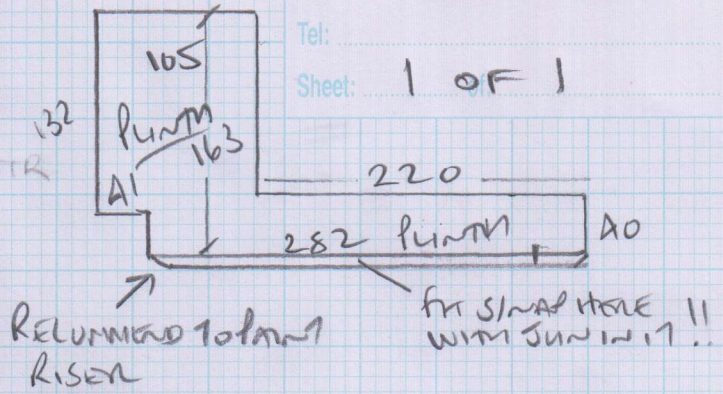 Tel:
Sheet: 1 OF 1
105
132
PLINTH
163
220
A1
282 PLINTH
A0
RECOMMEND TO PAINT
RISER
FIT S/NAP HERE
WITH JUN IN IT !!